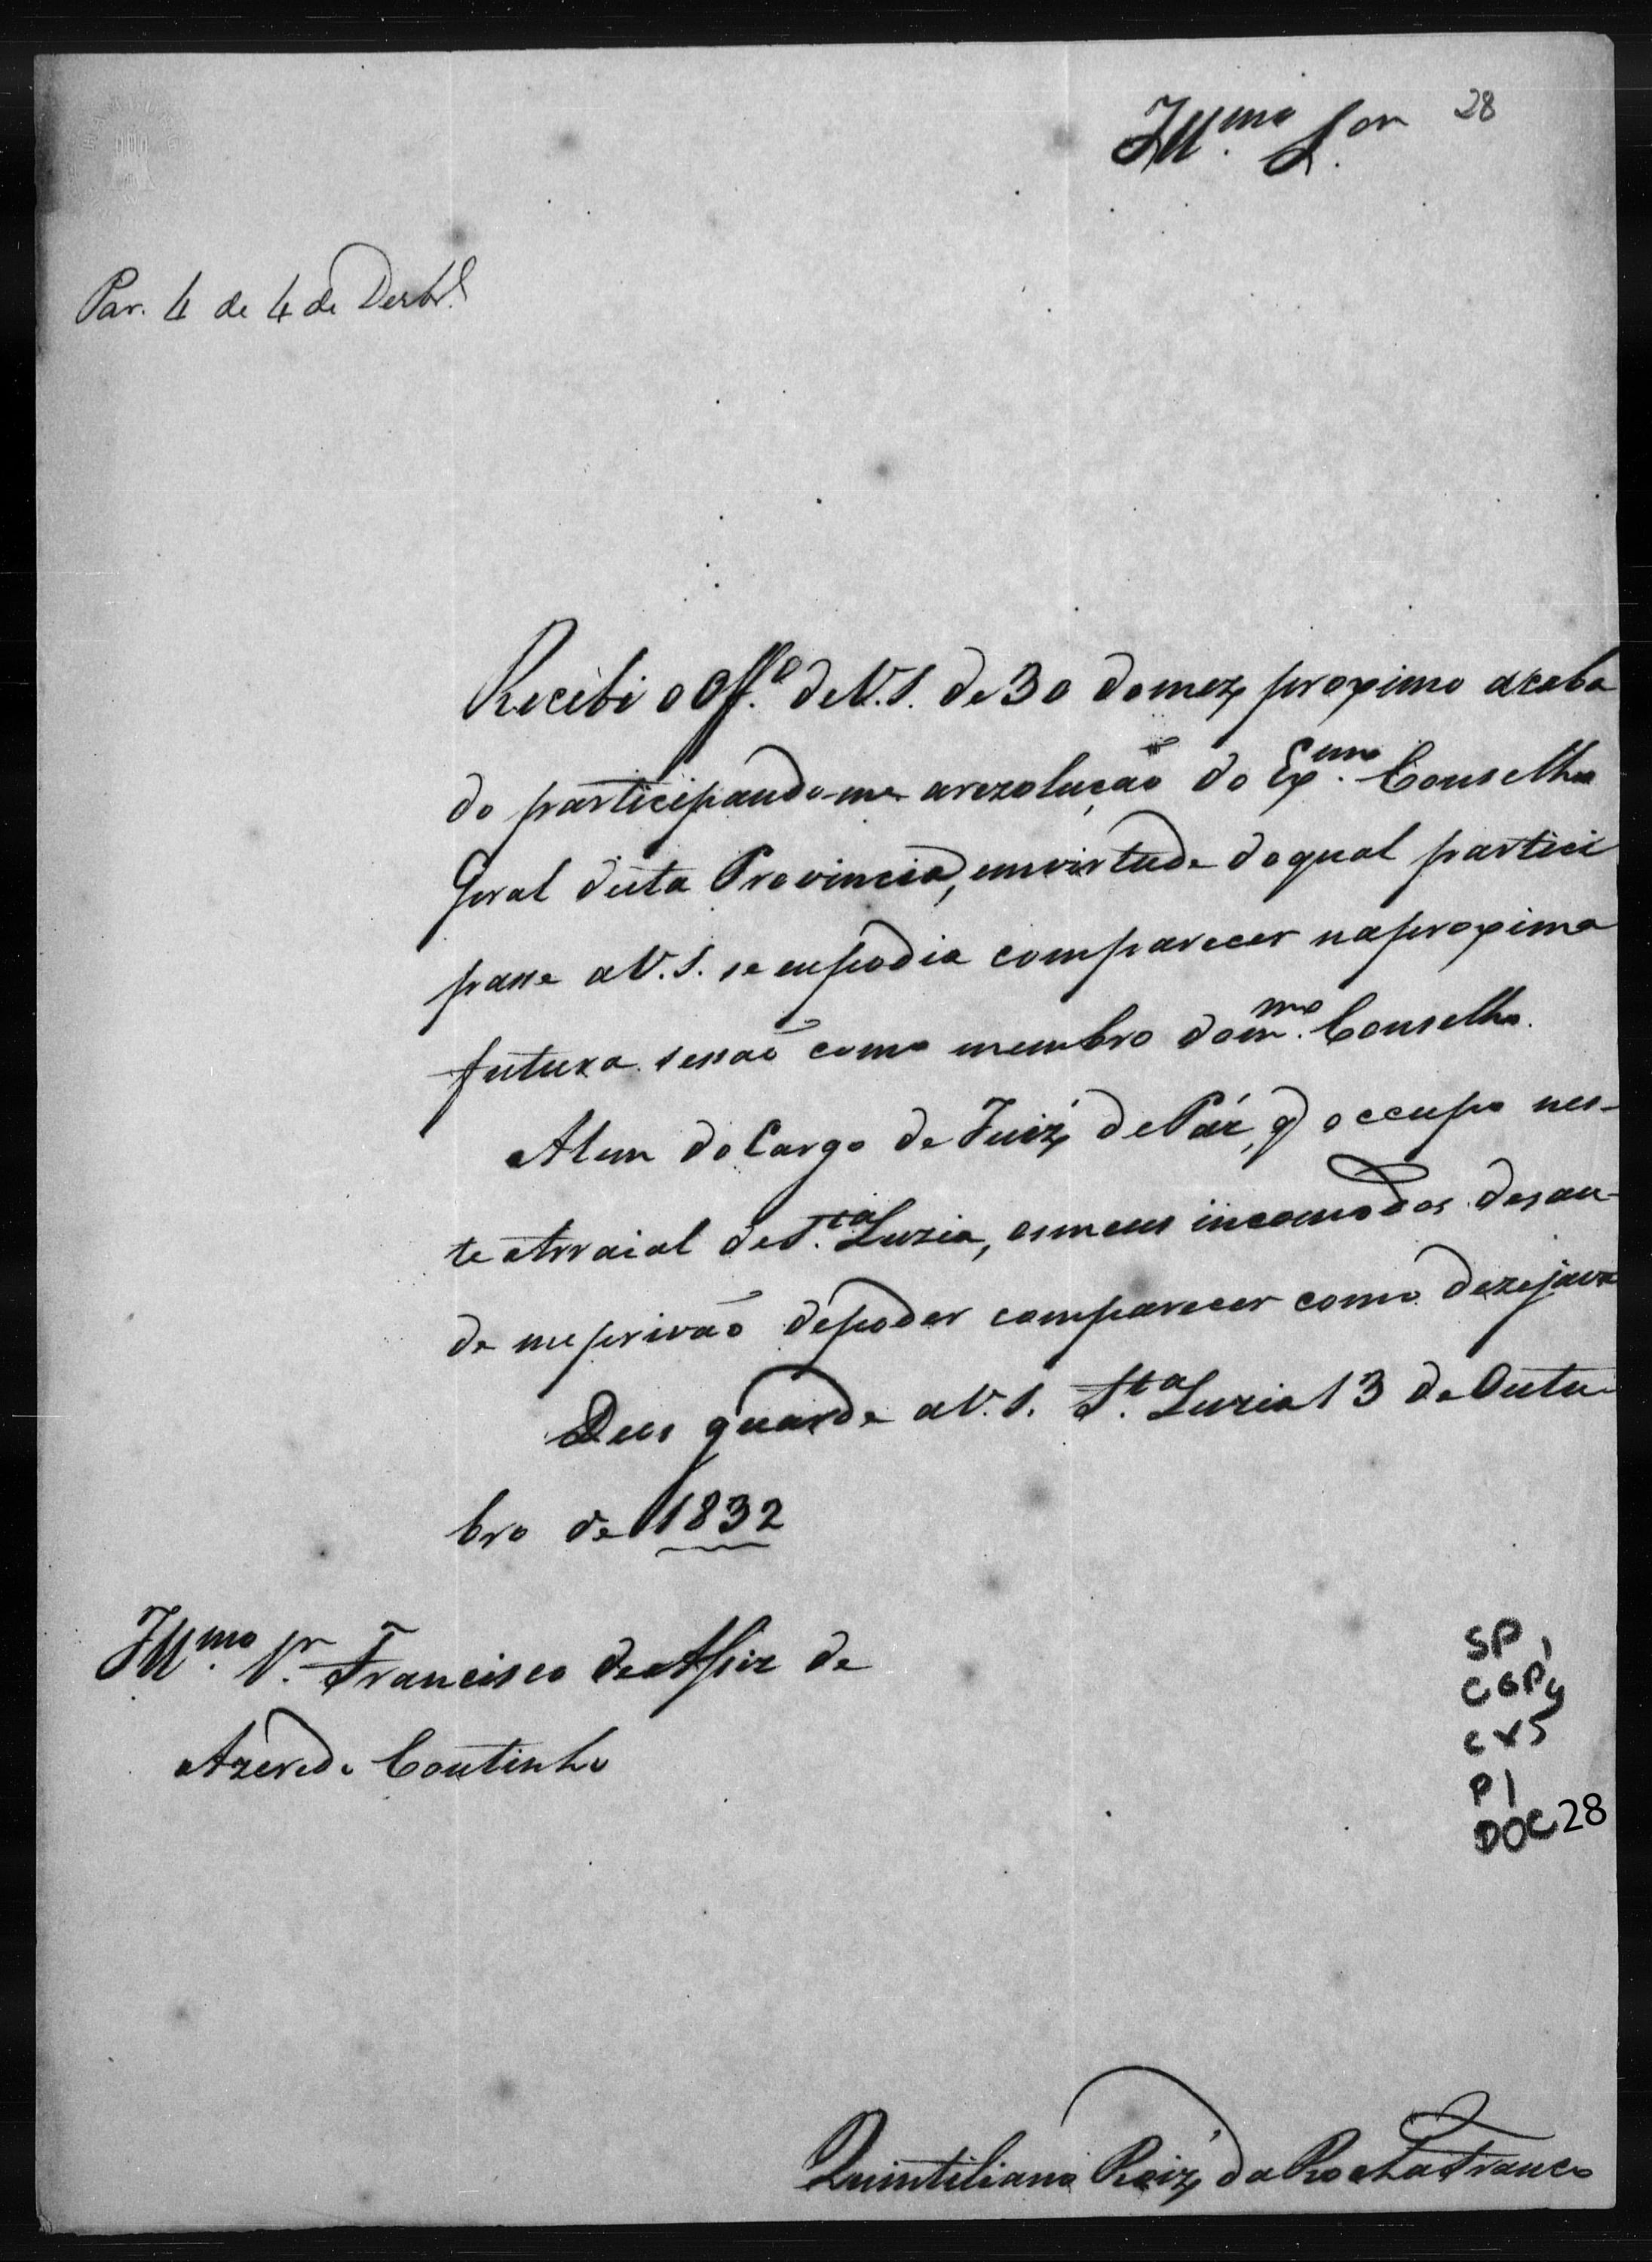 28
Ill.mo S.or
Par. 4 de 4 de Dezbr.
Recebi o Off.o de V.S. de 30 do mez proximo acaba
do participando-me a rezolução do Ex.mo Conselho
Geral desta Provincia, em virtude do qual partici
passe a V.S. se eu podia comparecer na proxima
futura sessão como membro do m.mo Conselho.
Alem do Cargo de Juiz de Páz, q occupo nes-
te Arraial de S.ta Luzia, os meus incomodos de sau-
de me privão de poder comparecer como dezejava
Deos guarde a V.S. S.ta Luzia 13 de Outu-
bro de 1832
Ill.mo Sr. Francisco de Assiz de
Azeredo Coutinho
SP
CGP4
CX5
P1
DOC 28
Quintiliano Roiz da Rocha Franco